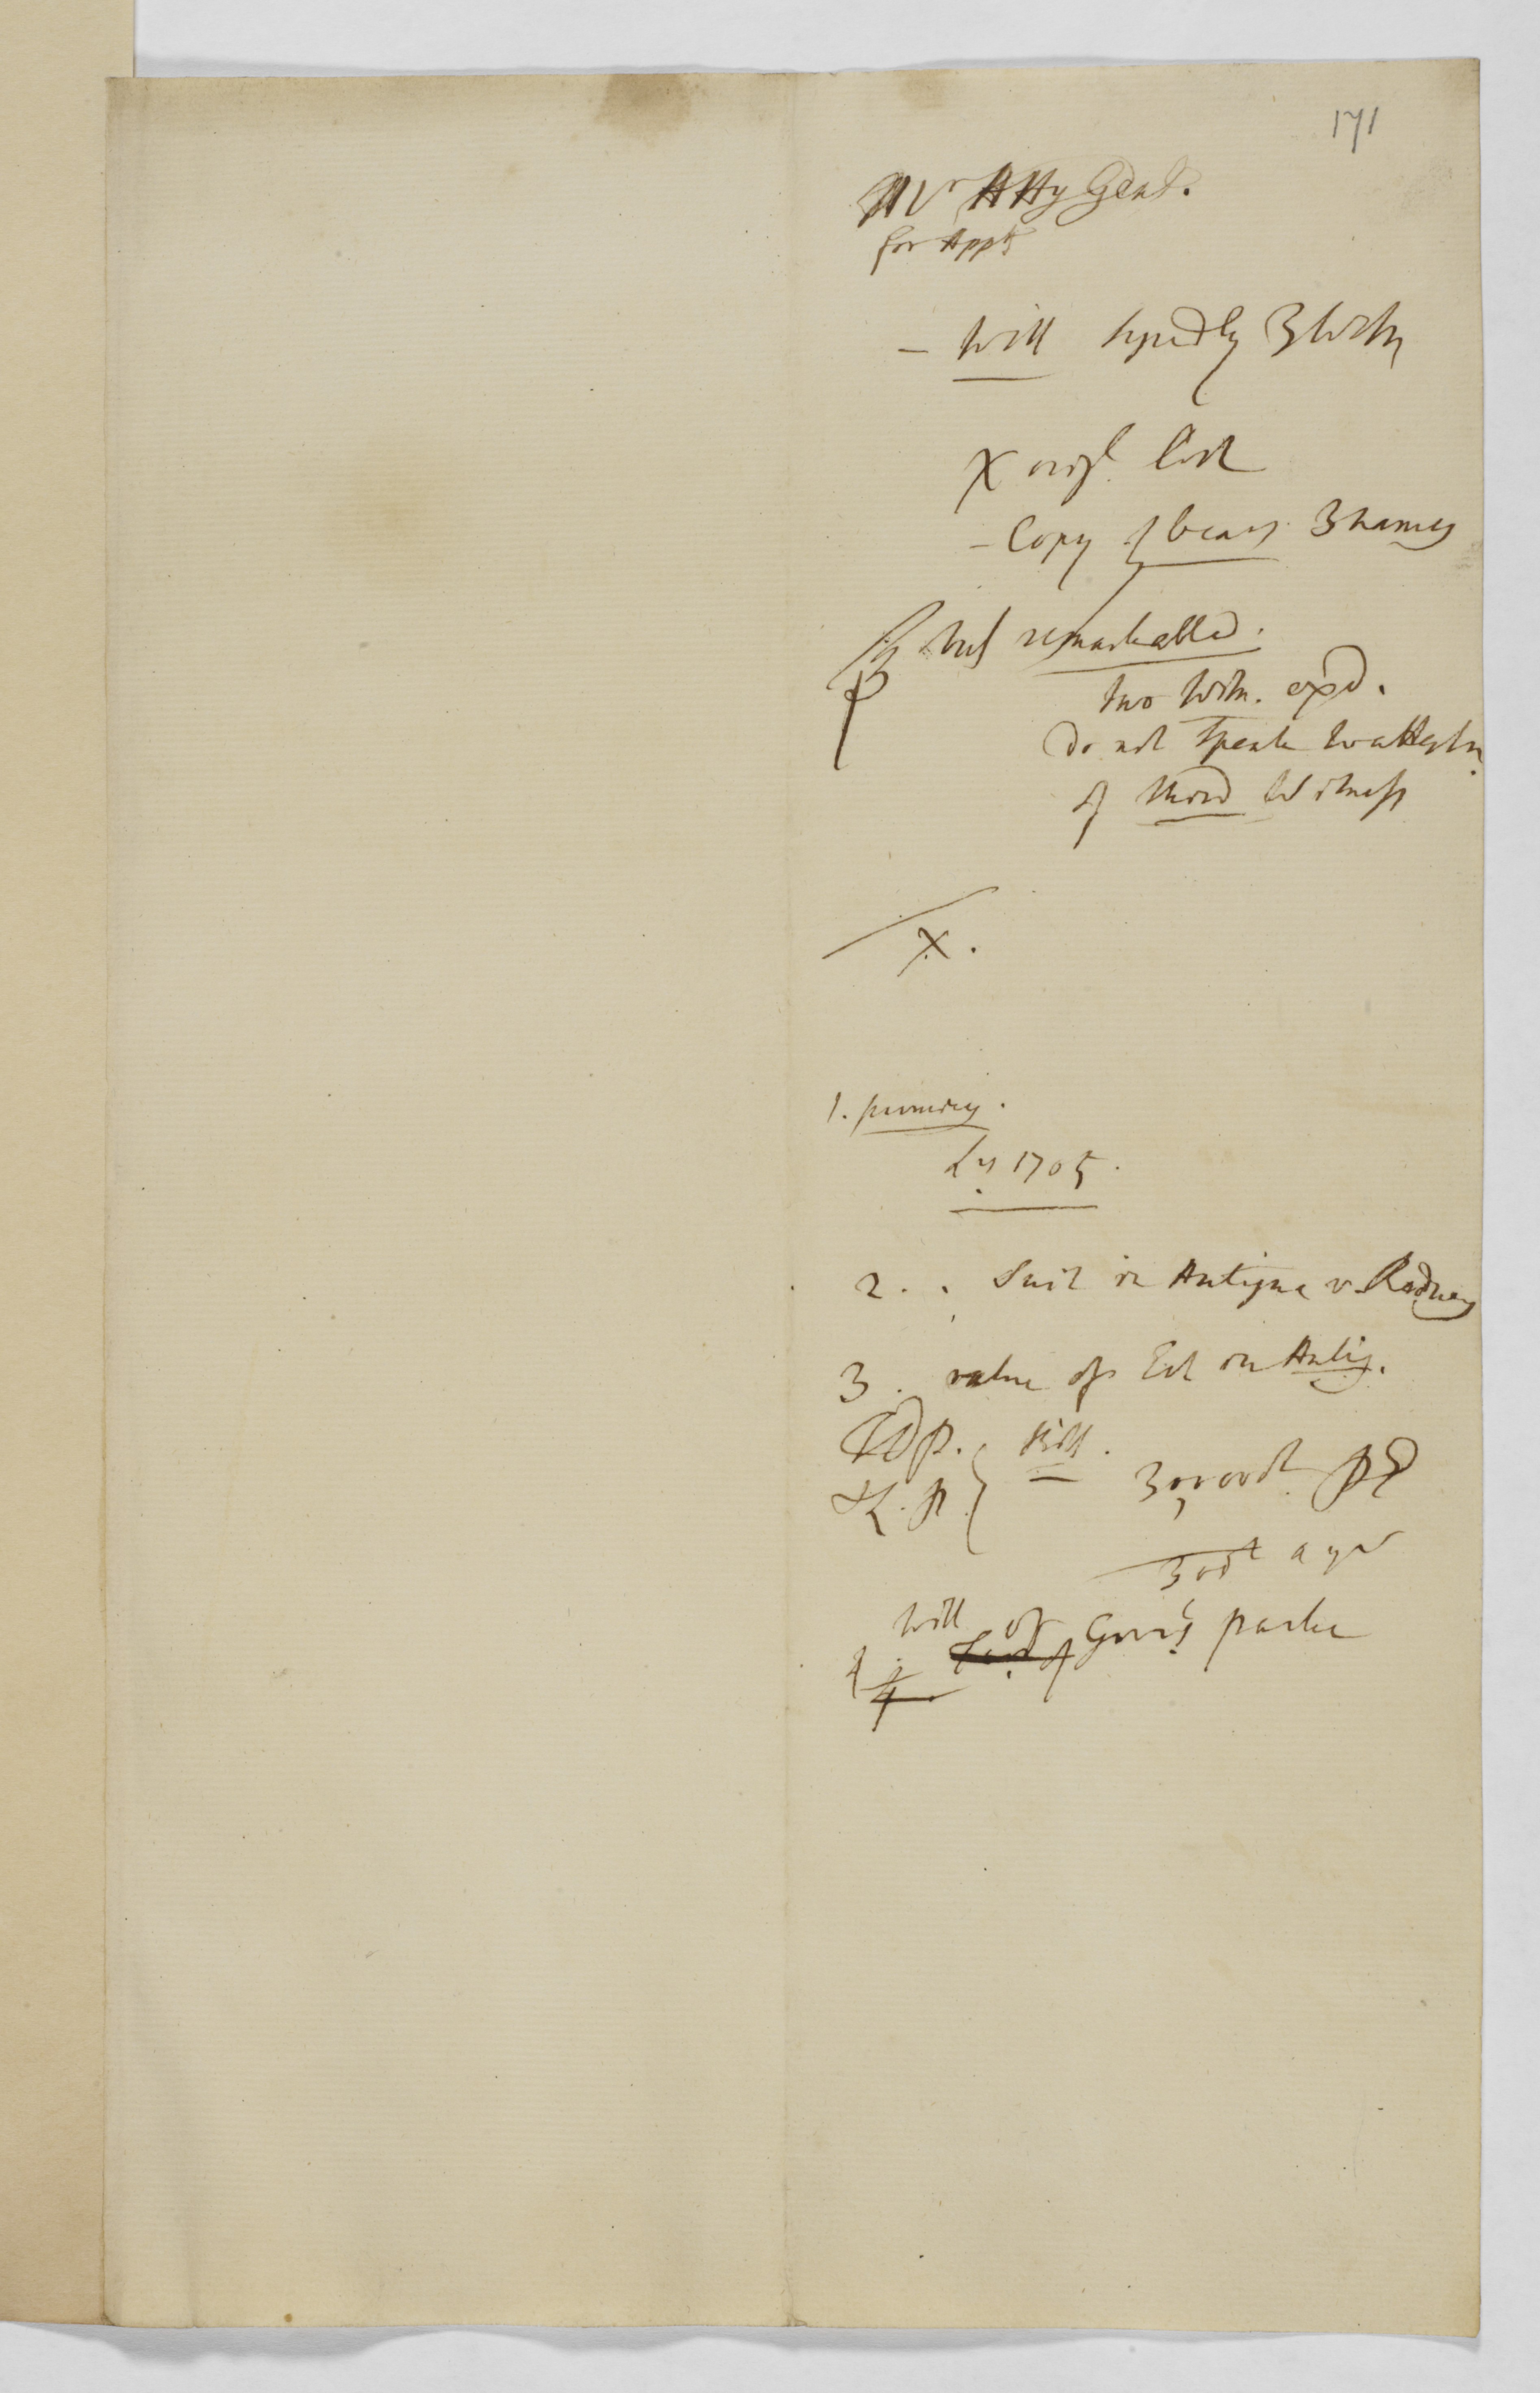 171
Mr Atty Genl.
for Appts
- Will signd by 3 Witn
X origl lost
- Copy of bears 3 names
but remarkable.
two Witn. exd.
do not speak to attestn
of third Witness
X.
1.
1705.
2. Suit in Antigua v. Rodney
3. value of Est in Antig.
Will.
30,000£ pd
300£ a yr
Will of Govr's parke
4